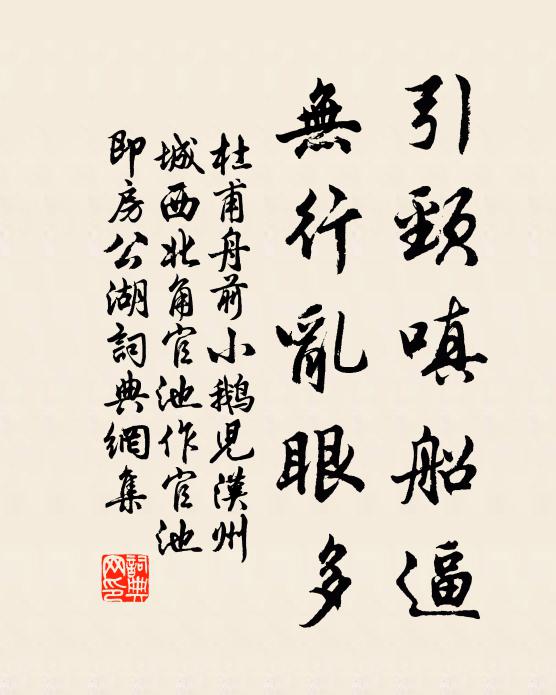 引頸嗔船逼
無行亂眼多
杜甫舟前小鵝兒漢州
城西北角官池作官池
即房公湖詞典網集
詞典
网印